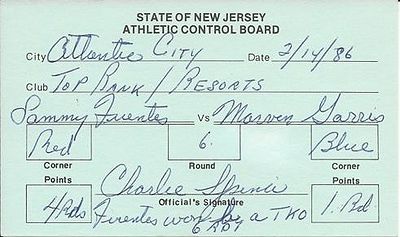 STATE OF NEW JERSEY
ATHLETIC CONTROL BOARD
City Atlantic City Date 2/14/86
Club Top Rank / Resorts
Sammy Fuentes Vs Marvin Garris
Red 6. Blue
Corner Round Corner
Points Charlie Spinie Points
Official's Signature
4 Rds Fuentes won by a TKO 1. Rd
6 Rd